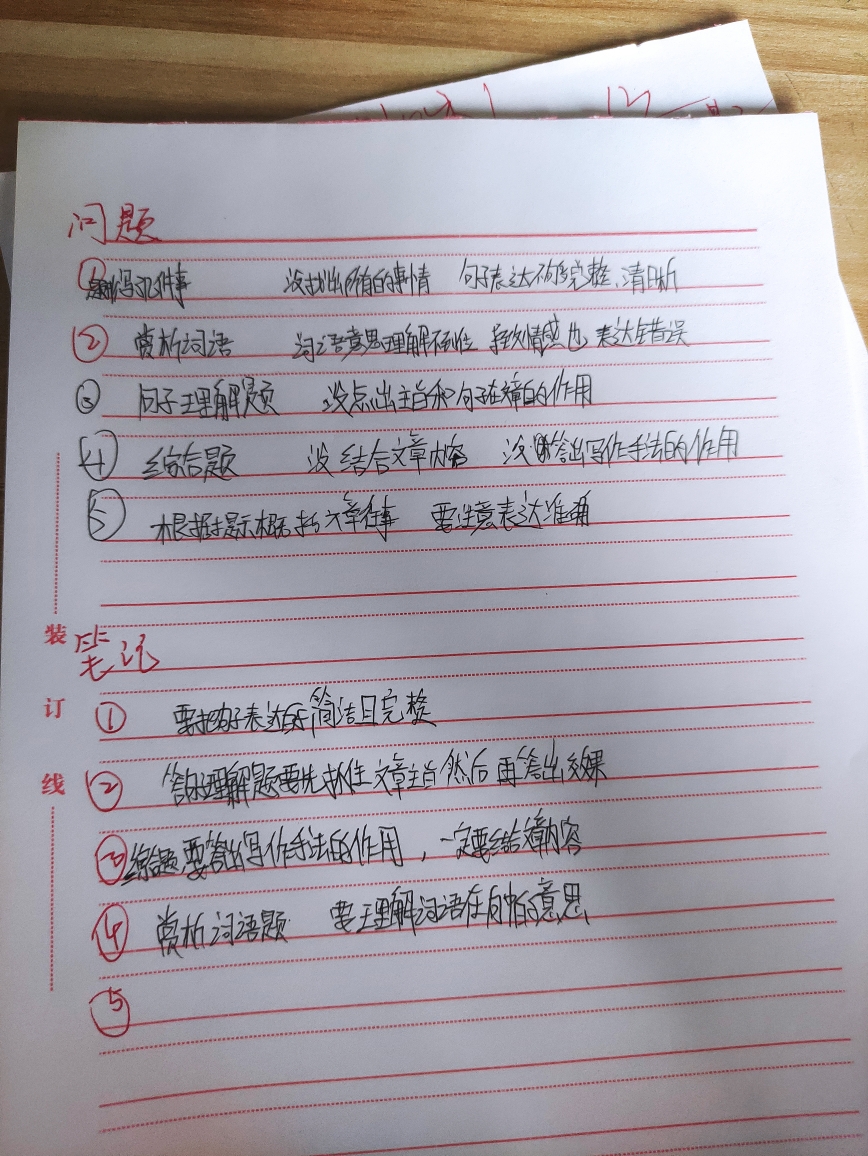 问题
① 写几件事 没找出所有的事情 句子表达不够完整、清晰
② 赏析词语 词语意思理解不到位 导致情感也表达错误
③ 句子理解题 没点出主旨和句子在文章的作用
④ 综合题 没结合文章内容 没答出写作手法的作用
⑤ 根据提示概括文章往事 要注意表达准确
装订线
笔记
① 要把句子表达的简洁且完整
② 句子理解题要先抓住文章主旨然后再答出效果
③ 综合题要答出写作手法的作用，一定要结合文章内容
④ 赏析词语题 要理解词语在句中的意思
⑤